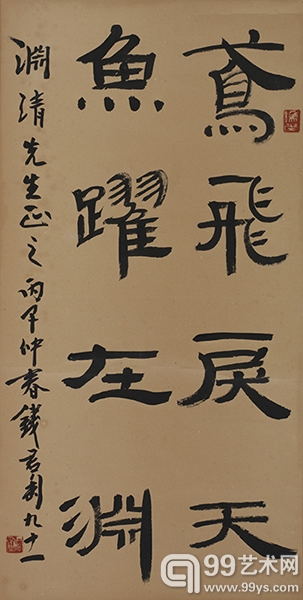 鳶飛戾天
魚躍在淵
淵清先生正之丙子仲春錢君匋九十一
99艺术网
www.99ys.com